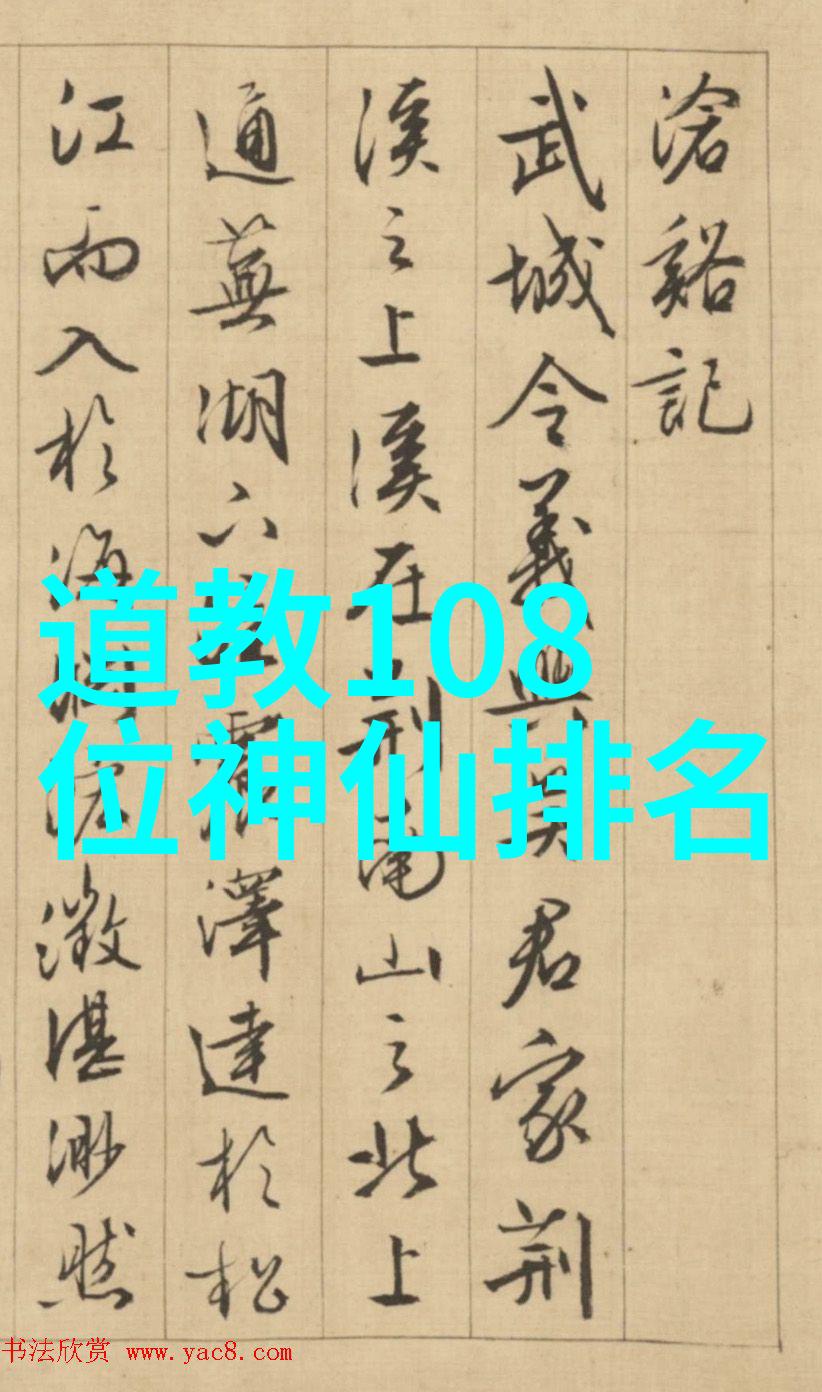 滄谿記
武城令義興吳君家荆
溪之上溪在荆南山之北上
通蕪湖下
澤達於松
江而入於海
澂湛渺然
道教108
位神仙排名
书法欣赏 www.yac8.com